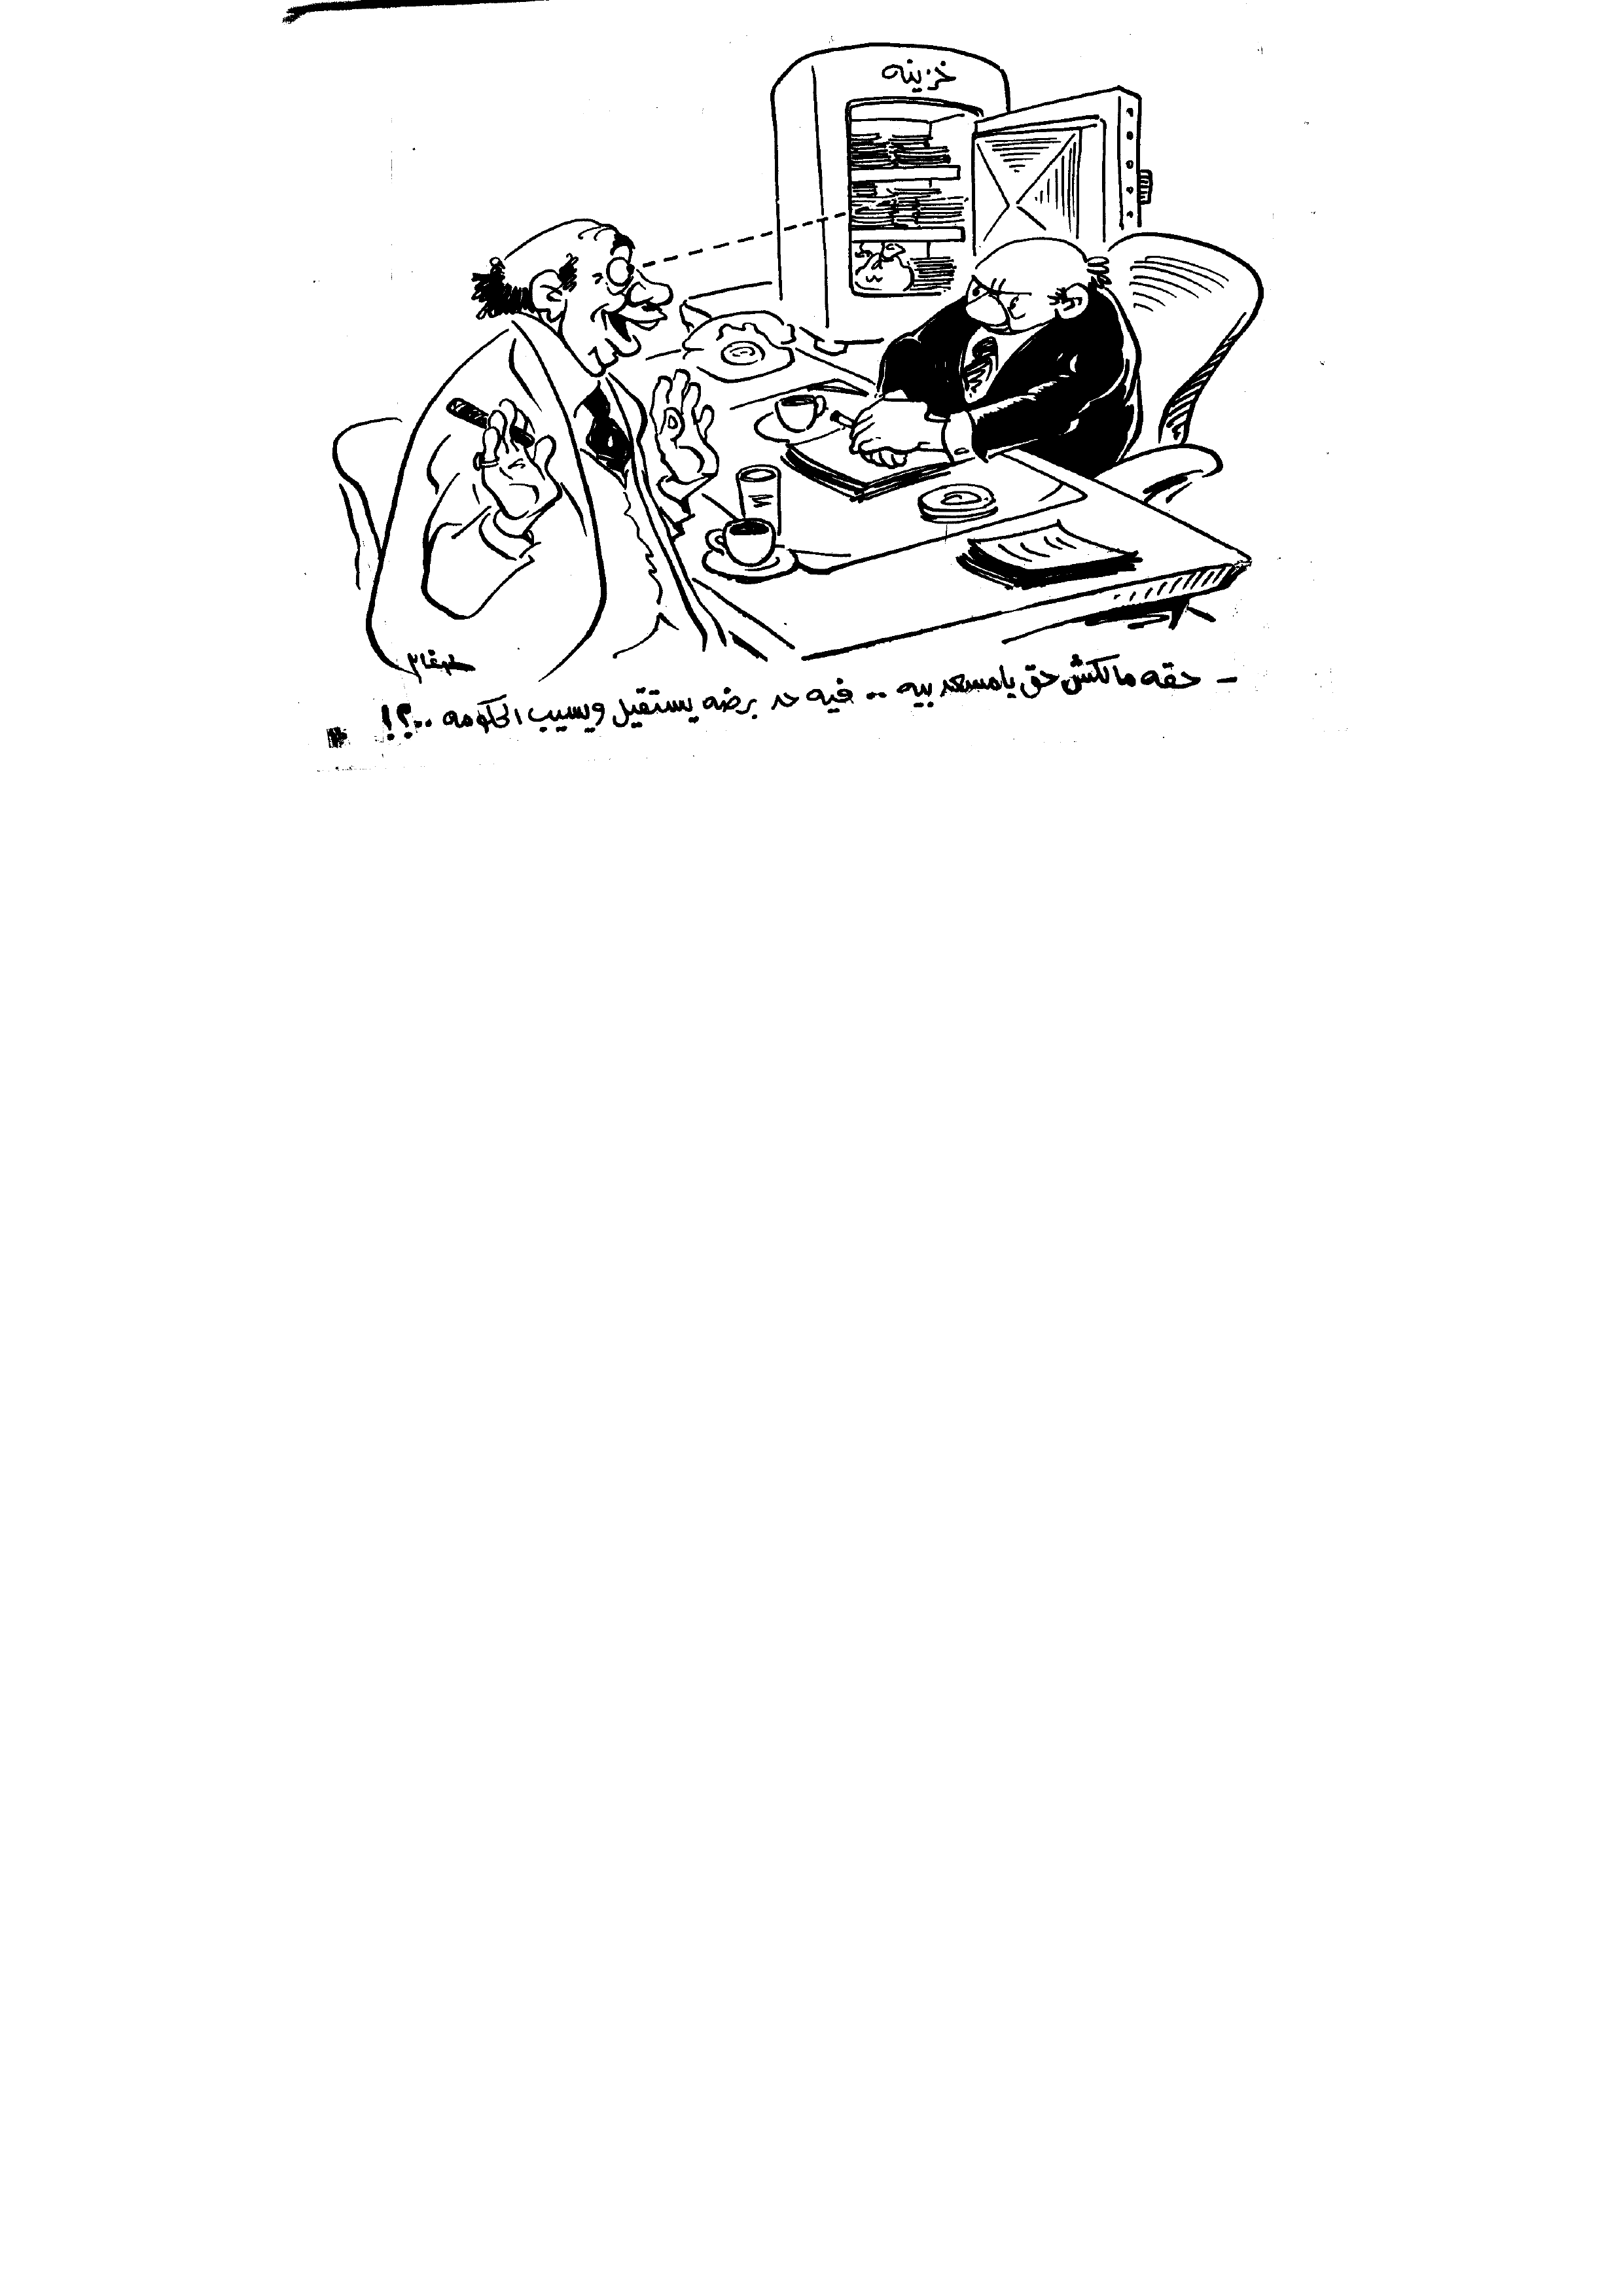 خزينه
طوغان
- حقه مالكش حق يا مسعد بيه .. فيه حد برضه يستقيل ويسيب الحكومه ..؟!